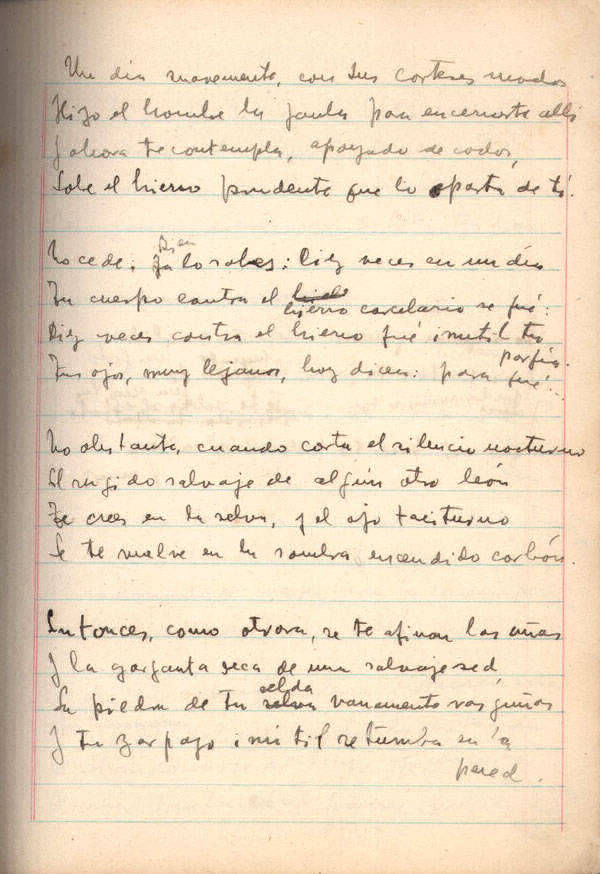 Un día suavemente, con sus corteses modos
Hizo el hombre la jaula para encerrarte allí
Y ahora te contempla, apoyado de codos,
Sobre el hierro prudente que lo aparta de tí.
No cede; Bien lo sabes: Diez veces en un día
Tu cuerpo contra el hierro carcelario se fué:
Diez veces contra el hierro fué inutil tu
porfía.
Tus ojos, muy lejanos, hoy dicen: para qué...
No obstante, cuando corta el silencio nocturno
El rugido salvaje de algún otro león
Te crees en la selva, y el ojo taciturno
Se te vuelve en la sombra encendido carbón.
Entonces, como otrora, se te afinan las uñas
Y la garganta seca de una salvaje sed
La piedra de tu celda vanamente rasguñas
Y tu zarpazo inútil retumba en la
pared.